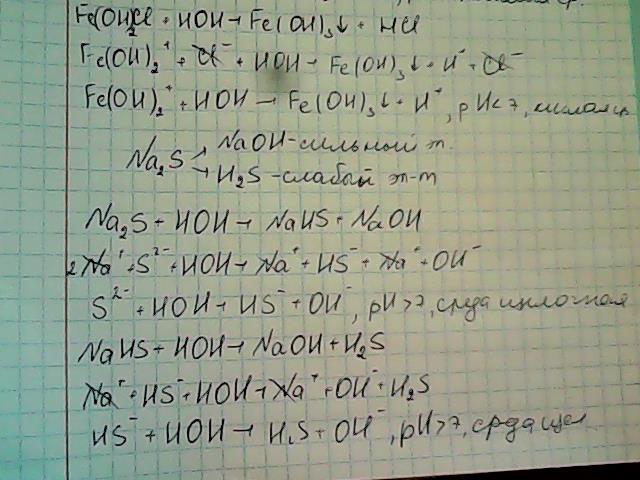 Fe(OH)₂Cl + HOH → Fe(OH)₃↓ + HCl
Fe(OH)₂⁺ + Cl⁻ + HOH → Fe(OH)₃↓ + H⁺ + Cl⁻
Fe(OH)₂⁺ + HOH → Fe(OH)₃↓ + H⁺, pH<7, кислая ср
NaOH - сильный эл.
Na₂S
H₂S - слабый эл-т
Na₂S + HOH → NaHS + NaOH
2Na⁺ + S²⁻ + HOH → Na⁺ + HS⁻ + Na⁺ + OH⁻
S²⁻ + HOH → HS⁻ + OH⁻, pH>7, среда щелочная
NaHS + HOH → NaOH + H₂S
Na⁺ + HS⁻ + HOH → Na⁺ + OH⁻ + H₂S
HS⁻ + HOH → H₂S + OH⁻, pH>7, среда щел